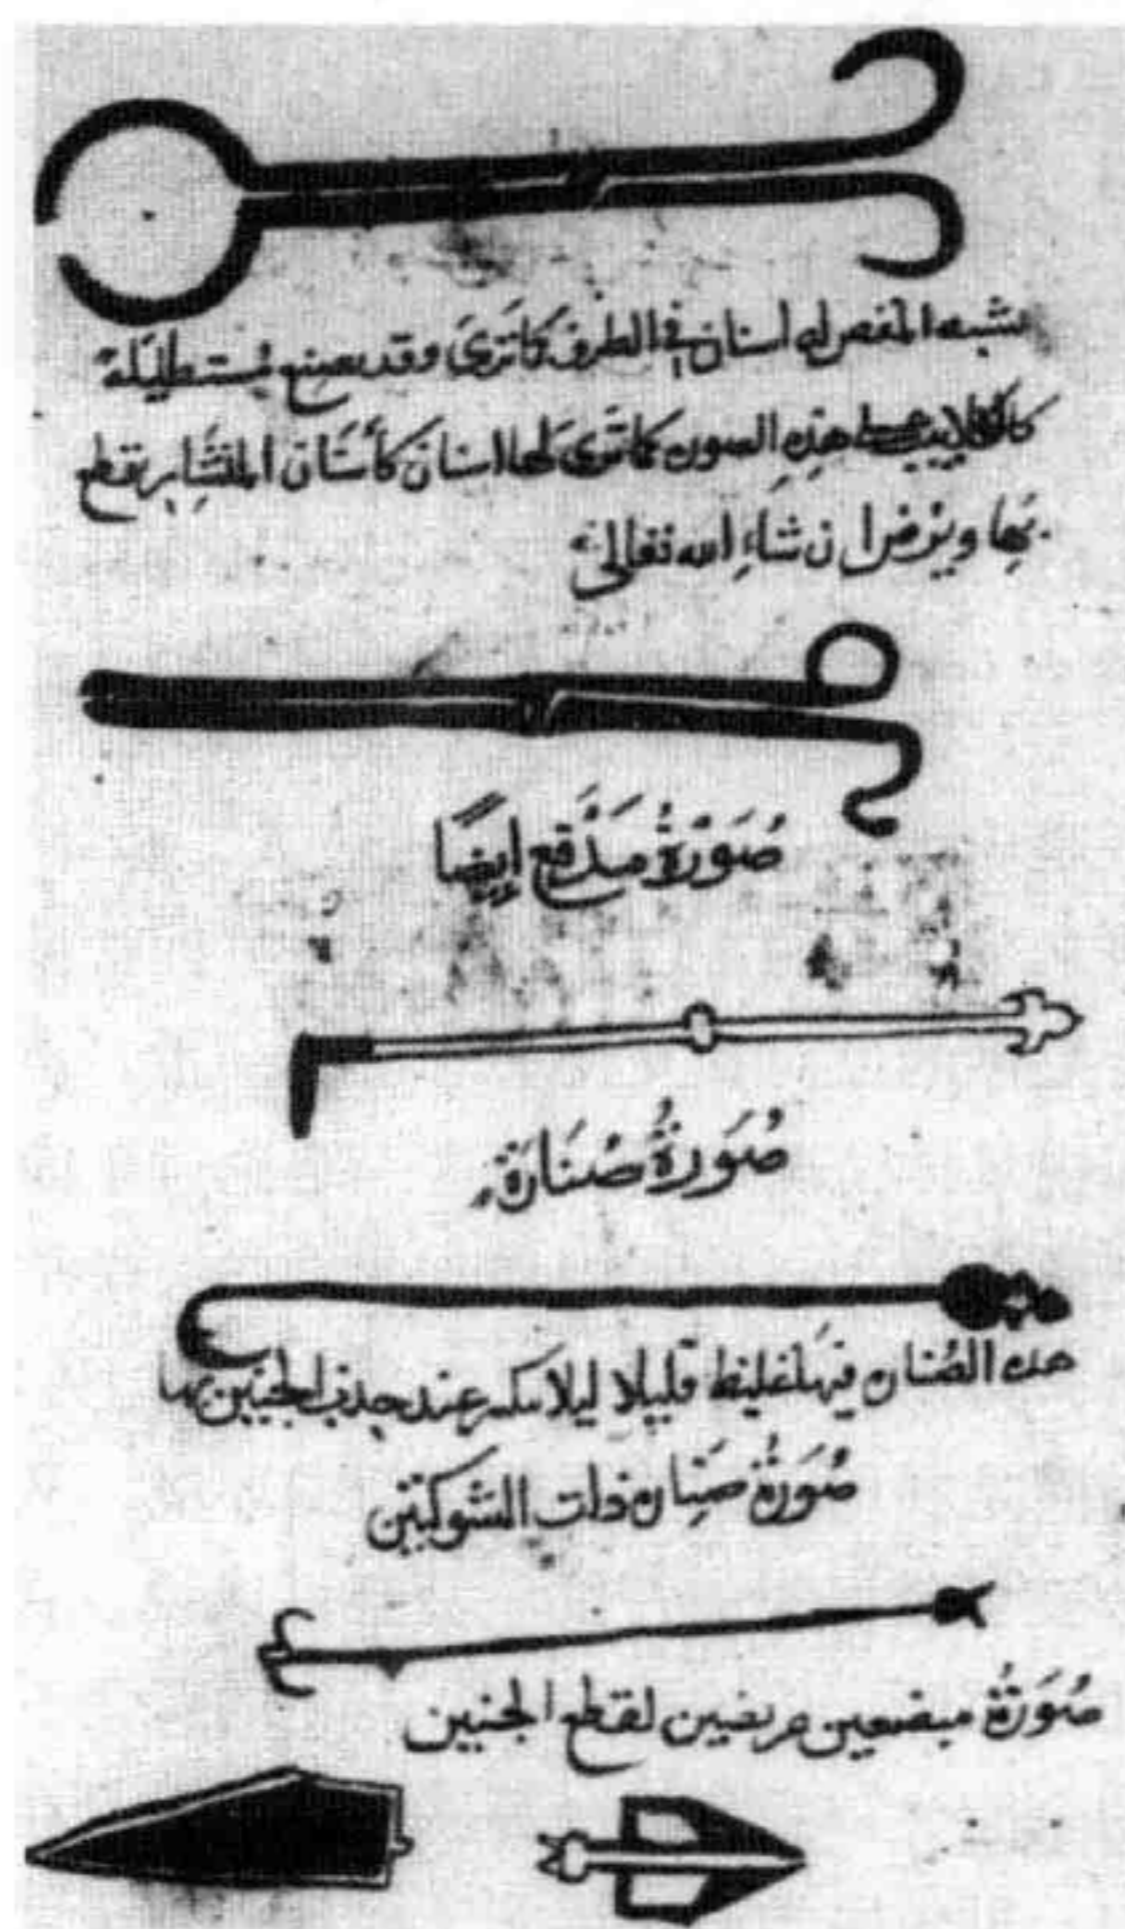 يشبه المقص له اسنان في الطرف كَاتَرَى وقد يصنع مُستطيلة
كالكلاليب على هذِهِ الصوره كماتَرى لَها اسنان كَأسْنَان المنْشَار يقطع
بِهَا ويرض ان شَاءِ الله تعالى
صُوَرَةُ مدْفَع ايضًا
صُوَرَةُ صْنَارَة
هذه الصُناره فيهَا غليظ قليلا ليلا تنكسر عند جذب الجنين بها
صُوَرَةُ صَنِاره ذات الشَوكتين
صُوَرَةُ مبضعين عريضين لقطع الجنين